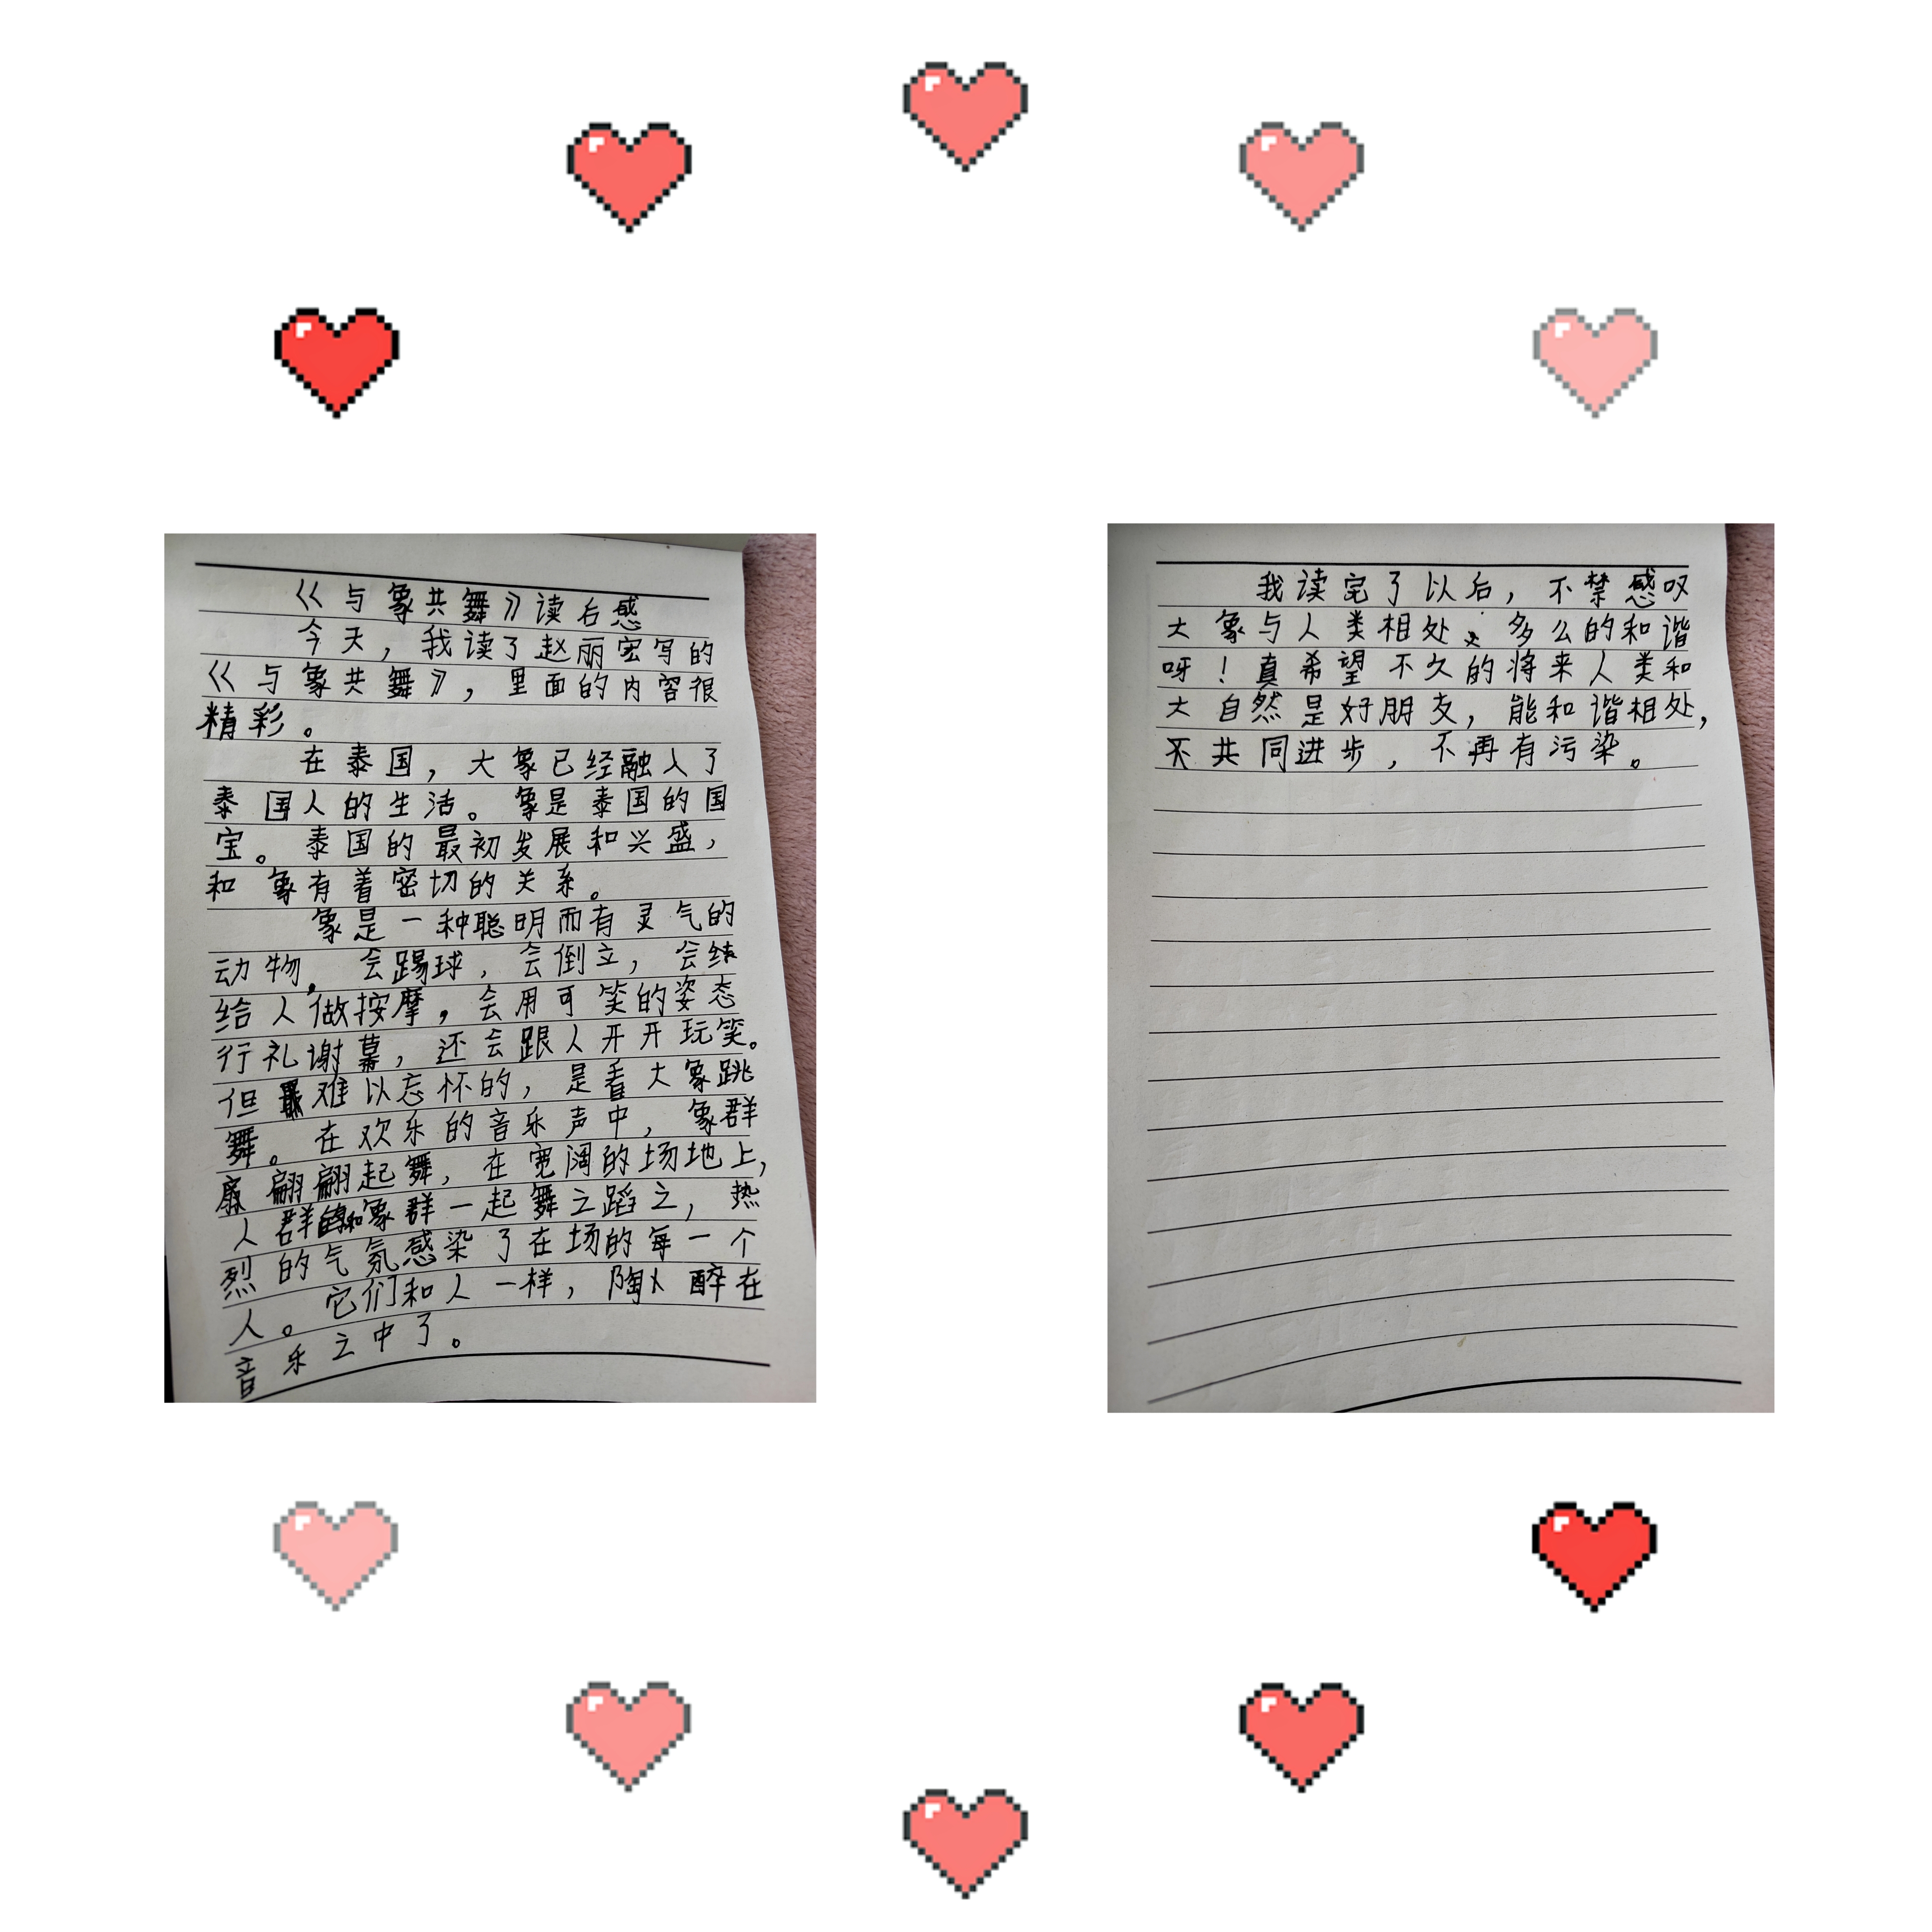 《与象共舞》读后感
今天，我读了赵丽宏写的
《与象共舞》，里面的内容很
精彩。
在泰国，大象已经融入了
泰国人的生活。象是泰国的国
宝。泰国的最初发展和兴盛，
和象有着密切的关系。
象是一种聪明而有灵气的
动物，会踢球，会倒立，会
给人做按摩，会用可笑的姿态
行礼谢幕，还会跟人开开玩笑。
但最难以忘怀的，是看大象跳
舞。在欢乐的音乐声中，象群
翩翩起舞，在宽阔的场地上，
人群和象群一起舞之蹈之，热
烈的气氛感染了在场的每一个
人。它们和人一样，陶醉在
音乐之中了。
我读完了以后，不禁感叹
大象与人类相处，多么的和谐
呀！真希望不久的将来人类和
大自然是好朋友，能和谐相处，
共同进步，不再有污染。